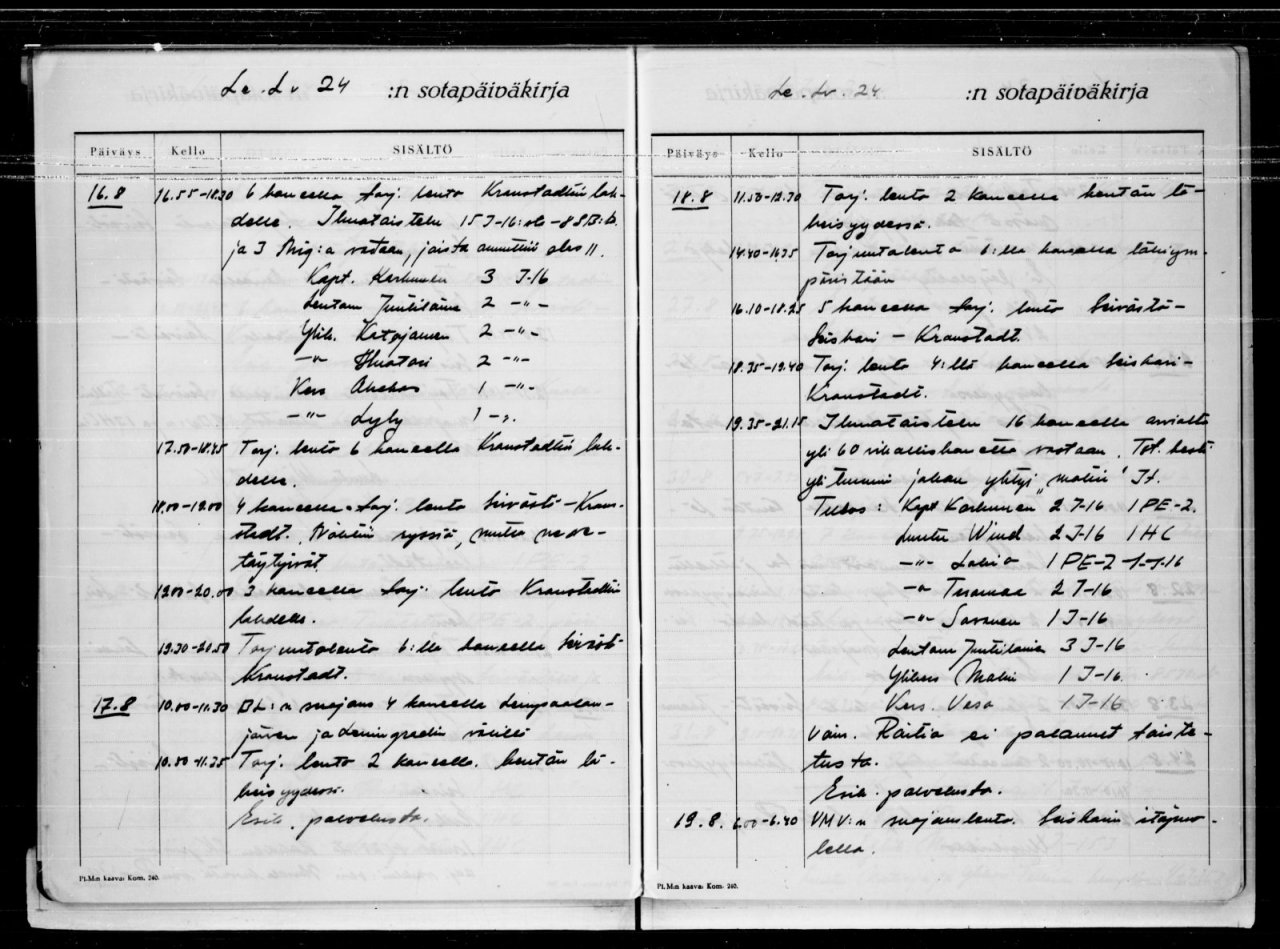 Le. Lv 24 :n sotapäiväkirja
Päiväys Kello SISÄLTÖ
16.8 16.55-18.30 6 koneella torj. lento Kronstadtin lah-
della. Ilmataistelu 15 I-16: sta - 8 SB: ta
ja 3 Mig: a vastaan, joista ammuttiin alas 11.
Kapt. Karhunen 3 I-16
Lentom Juutilainen 2 -"-
Ylik. Katajainen 2 -"-
-"- Ilmatari 2 -"-
Kers Ahokas 1 -"-
-"- Lyly 1 -"-
17.50-18.45 Torj. lento 6 koneella Kronstadtin lah-
della.
18.00-19.00 4 koneella torj. lento Seivästö-Kron-
stadt. ryssiä, mutta
19.00-20.00 3 koneella torj. lento Kronstadtin
lahdella.
19.30-20.50 Torjuntalento 6:lla koneella Seivästö-
Kronstadt.
17.8 10.00-11.30 BL:n suojaus 4 koneella Lempaalan-
järven ja Leningradin välillä
10.50-11.35 Torj. lento 2 koneella kentän lä-
heisyydessä.
Esik. palvelusta.
Pt.M:n kaava: Kom. 240.
Le. Lv. 24 :n sotapäiväkirja
Päiväys Kello SISÄLTÖ
18.8 Torj. lento 2 koneella kentän lä-
heisyydessä.
Torjuntalento 6:lla koneella lähiym-
päristöön
16.10-18.25 5 koneella torj. lento Seivästö-
Seiskari - Kronstadt.
18.35-19.40 Torj. lento 4:llä koneella Seiskari-
Kronstadt.
19.35-21.15 Ilmataistelu 16 koneella arviolta
yli 60 viholliskonetta vastaan. Tst. kesti
yli tunnin johon yhtyi "molin" It.
Tulos: Kapt Karhunen 2 I-16 1 PE-2.
Luutn Wind 2 I-16 1 HC
-"- 1 PE-2 1 I-16
-"- 2 I-16
-"- Savonen 1 I-16
Lentom Juutilainen 3 I-16
Ylikers 1 I-16.
Kers. Vesa 1 I-16
Vänr. Raitio ei palannut taiste-
lusta.
Esik. palvelusta.
19.8. 6.00-6.40 VMV:n suojauslento. Seiskarin itäpuo-
lella.
Pt.M:n kaava: Kom. 240.